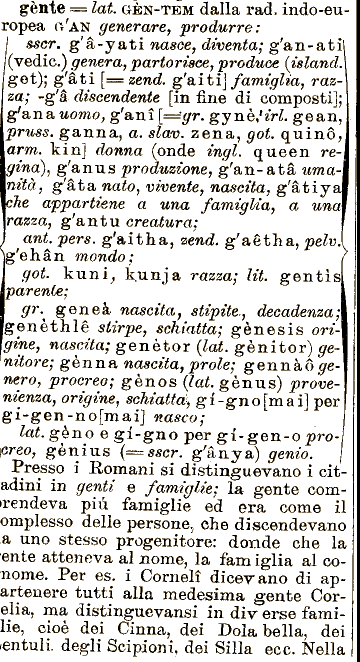 gènte = lat. GÈN-TEM dalla rad. indo-eu-
ropea G'AN generare, produrre:
sscr. g'â-yati nasce, diventa; g'an-ati
(vedic.) genera, partorisce, produce (island.
get); g'âti [= zend. g'aiti] famiglia, raz-
za; -g'â discendente [in fine di composti];
g'ana uomo, g'anî [=gr. gynè, irl. gean,
pruss. ganna, a. slav. zena, got. quinô,
arm. kin] donna (onde ingl. queen re-
gina), g'anus produzione, g'an-atâ uma-
nità, g'âta nato, vivente, nascita, g'âtiya
che appartiene a una famiglia, a una
razza, g'antu creatura;
ant. pers. g'aitha, zend. g'aêtha, pelv.
g'ehân mondo;
got. kuni, kunja razza; lit. gentis
parente;
gr. geneà nascita, stipite, decadenza;
genèthlê stirpe, schiatta; gènesis ori-
gine, nascita; genètor (lat. gènitor) ge-
nitore; gènna nascita, prole; gennàô ge-
nero, procreo; gènos (lat. gènus) prove-
nienza, origine, schiatta, gí-gno[mai] per
gi-gen-no[mai] nasco;
lat. gèno e gi-gno per gí-gen-o pro-
creo, gènius (= sscr. g'ânya) genio.
Presso i Romani si distinguevano i cit-
adini in genti e famiglie; la gente com-
rendeva piú famiglie ed era come il
omplesso delle persone, che discendevano
a uno stesso progenitore: donde che la
ente atteneva al nome, la famiglia al co-
nome. Per es. i Cornelî dicevano di ap-
artenere tutti alla medesima gente Cor-
elia, ma distinguevansi in diverse fami-
lie, cioè dei Cinna, dei Dolabella, dei
entuli. degli Scipioni, dei Silla ecc. Nella